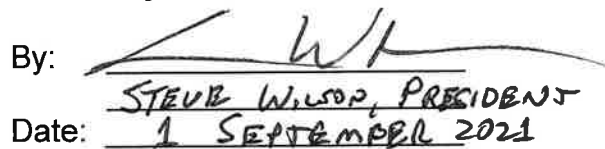 By:
STEVE WILSON, PRESIDENT
Date: 1 SEPTEMBER 2021